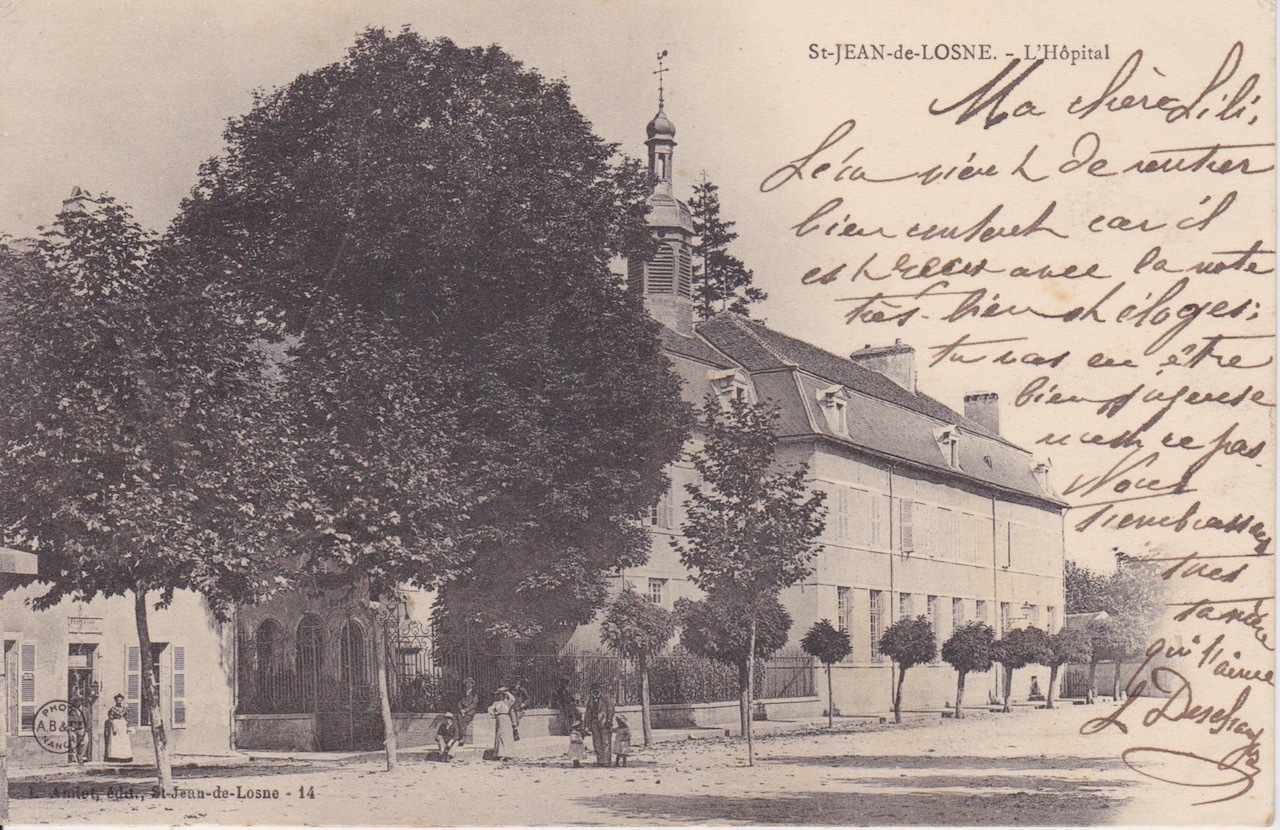 St-JEAN-de-LOSNE. - L'Hôpital
Ma chère Lili,
Léon vient de rentrer
bien content car il
est reçu avec la note
très-bien et éloges;
tu vas en être
bien joyeuse
n'est ce pas.
Nous
t'embrassons
très
Ta
qui t'aime
L
PHOT
A.B. &
NANCY
L. Amiot, édit., St-Jean-de-Losne - 14